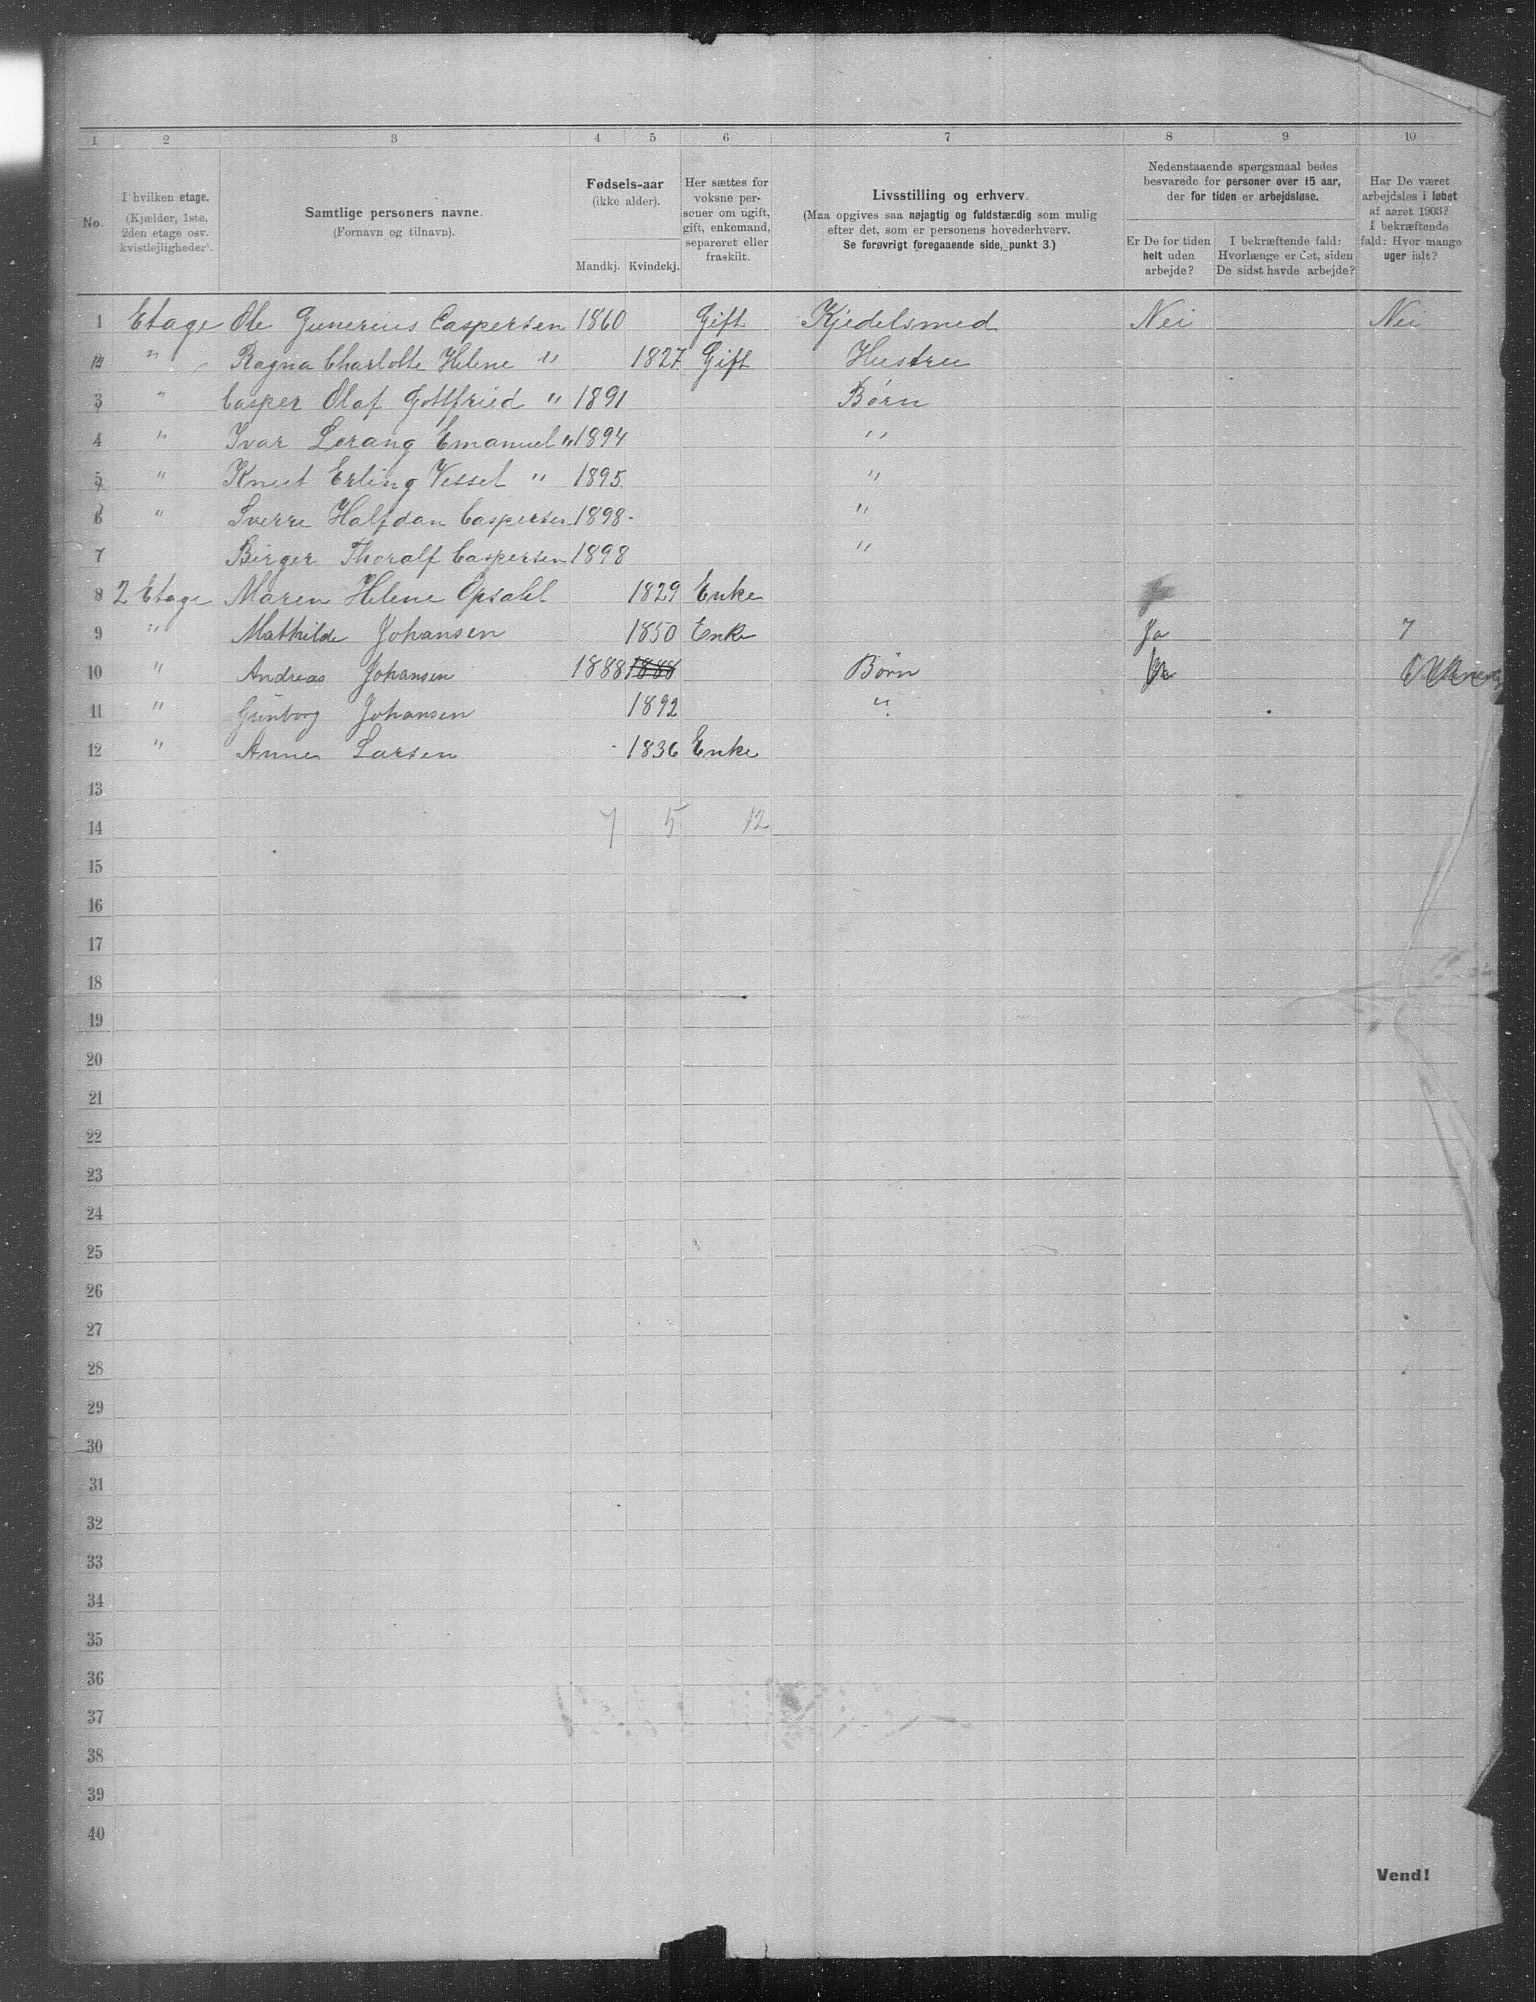 1 2 3 4 5 6 7 8 9 10
No.
I hvilken etage.
(Kjælder, 1ste,
2den etage osv.
kvistlejligheder).
Samtlige personers navne.
(Fornavn og tilnavn).
Fødsels-aar
(ikke alder).
Mandkj. Kvindekj.
Her sættes for
voksne per-
soner om ugift,
gift, enkemand,
separeret eller
fraskilt.
Livsstilling og erhverv.
(Maa opgives saa nøjagtig og fuldstændig som mulig
efter det, som er personens hovederhverv.
Se forøvrigt foregaaende side, punkt 3.)
Nedenstaaende spørgsmaal bedes
besvarede for personer over 15 aar,
der for tiden er arbejdsløse.
Er De for tiden
helt uden
arbejde?
I bekræftende fald:
Hvorlænge er det, siden
De sidst havde arbejde?
Har De været
arbejdsløs i løbet
af aaret 1903?
I bekræftende
fald: Hvor mange
uger ialt?
1 Etage Ole Gunerius Caspersen 1860 Gift Kjedelsmed Nei Nei
2 " Ragna Charlotte Helene " 1827 Gift Hustru
3 " Casper Olaf Gottfried " 1891 Børn
4 " Ivar Lorang Emanuel " 1894 "
5 " Knut Erling Vessel " 1895 "
6 " Sverre Halfdan Caspersen 1898 "
7 Birger Thoralf Caspersen 1898 "
8 2 Etage Maren Helene Opsahl 1829 Enke
9 " Mathilde Johansen 1850 Enke Ja 7
10 " Andreas Johansen 1888 1888 Børn
11 " Gunborg Johansen 1892 "
12 " Anne Larsen 1836 Enke
13
14 7 5 12
15
16
17
18
19
20
21
22
23
24
25
26
27
28
29
30
31
32
33
34
35
36
37
38
39
40
Vend!